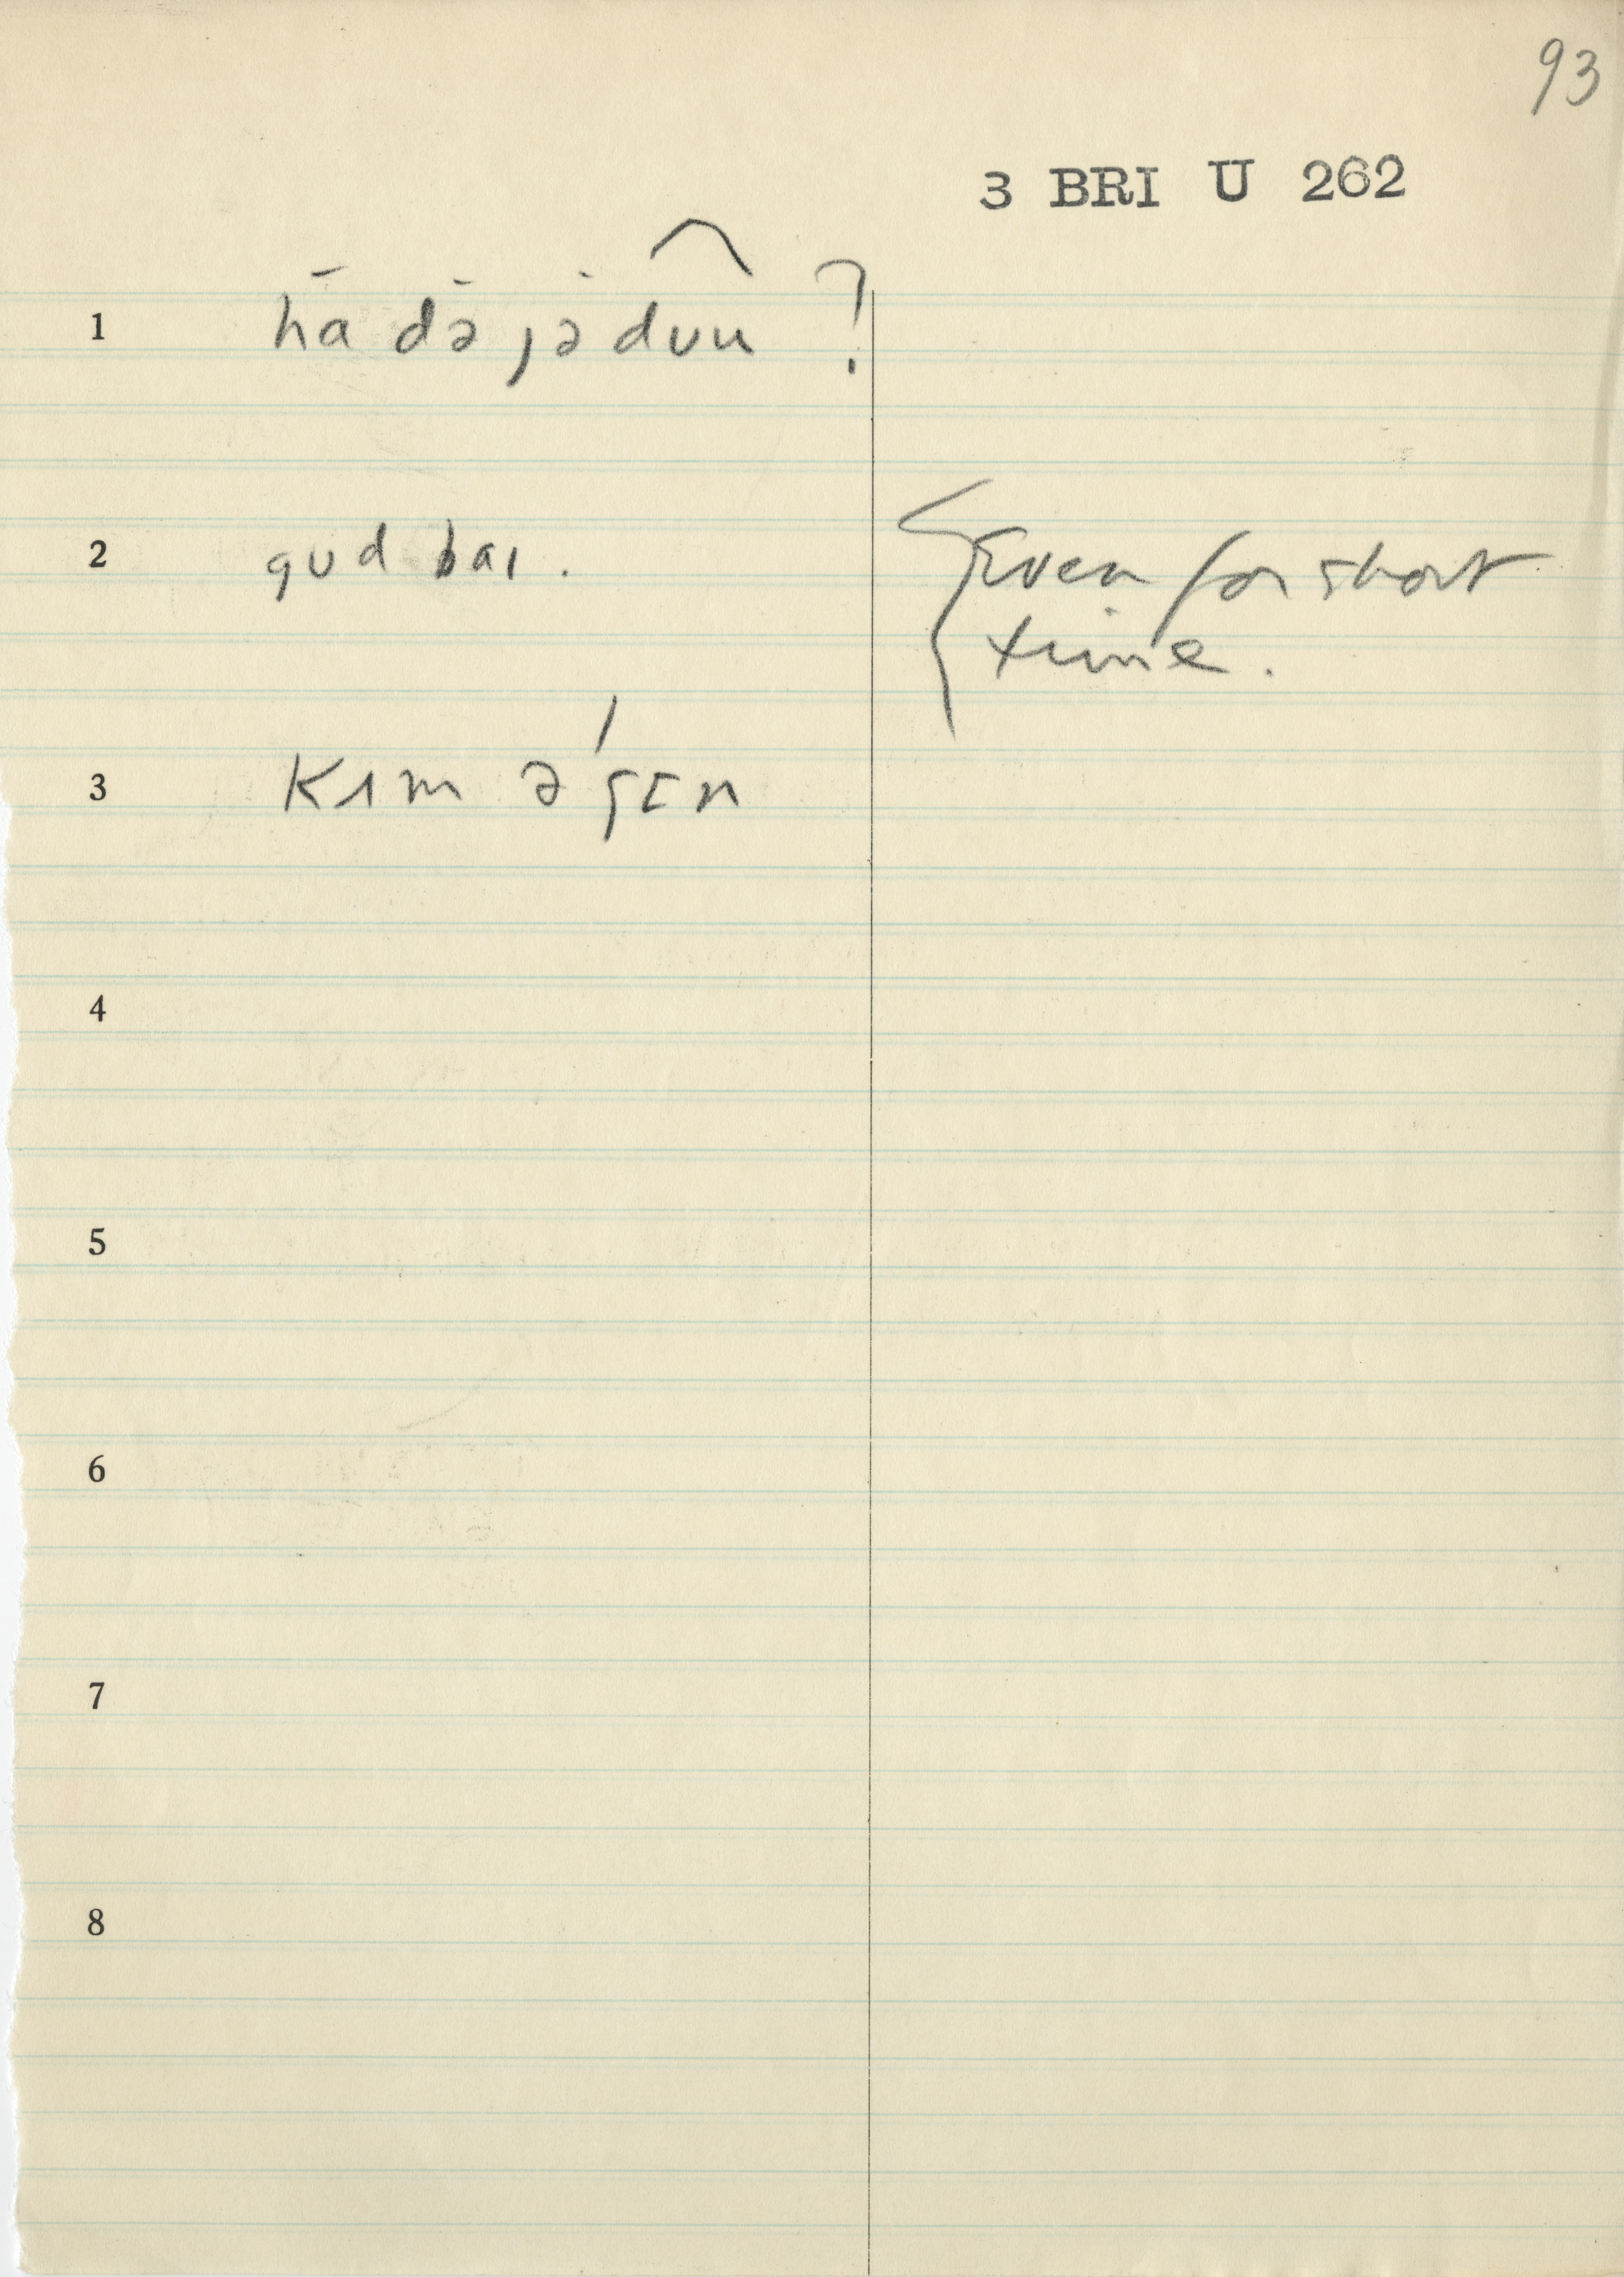 93
3 BRI U 262
1 ha də jə duu ?
2 gud baɪ .
Even for short
time .
3 kɪm əˈgɛn
4
5
6
7
8